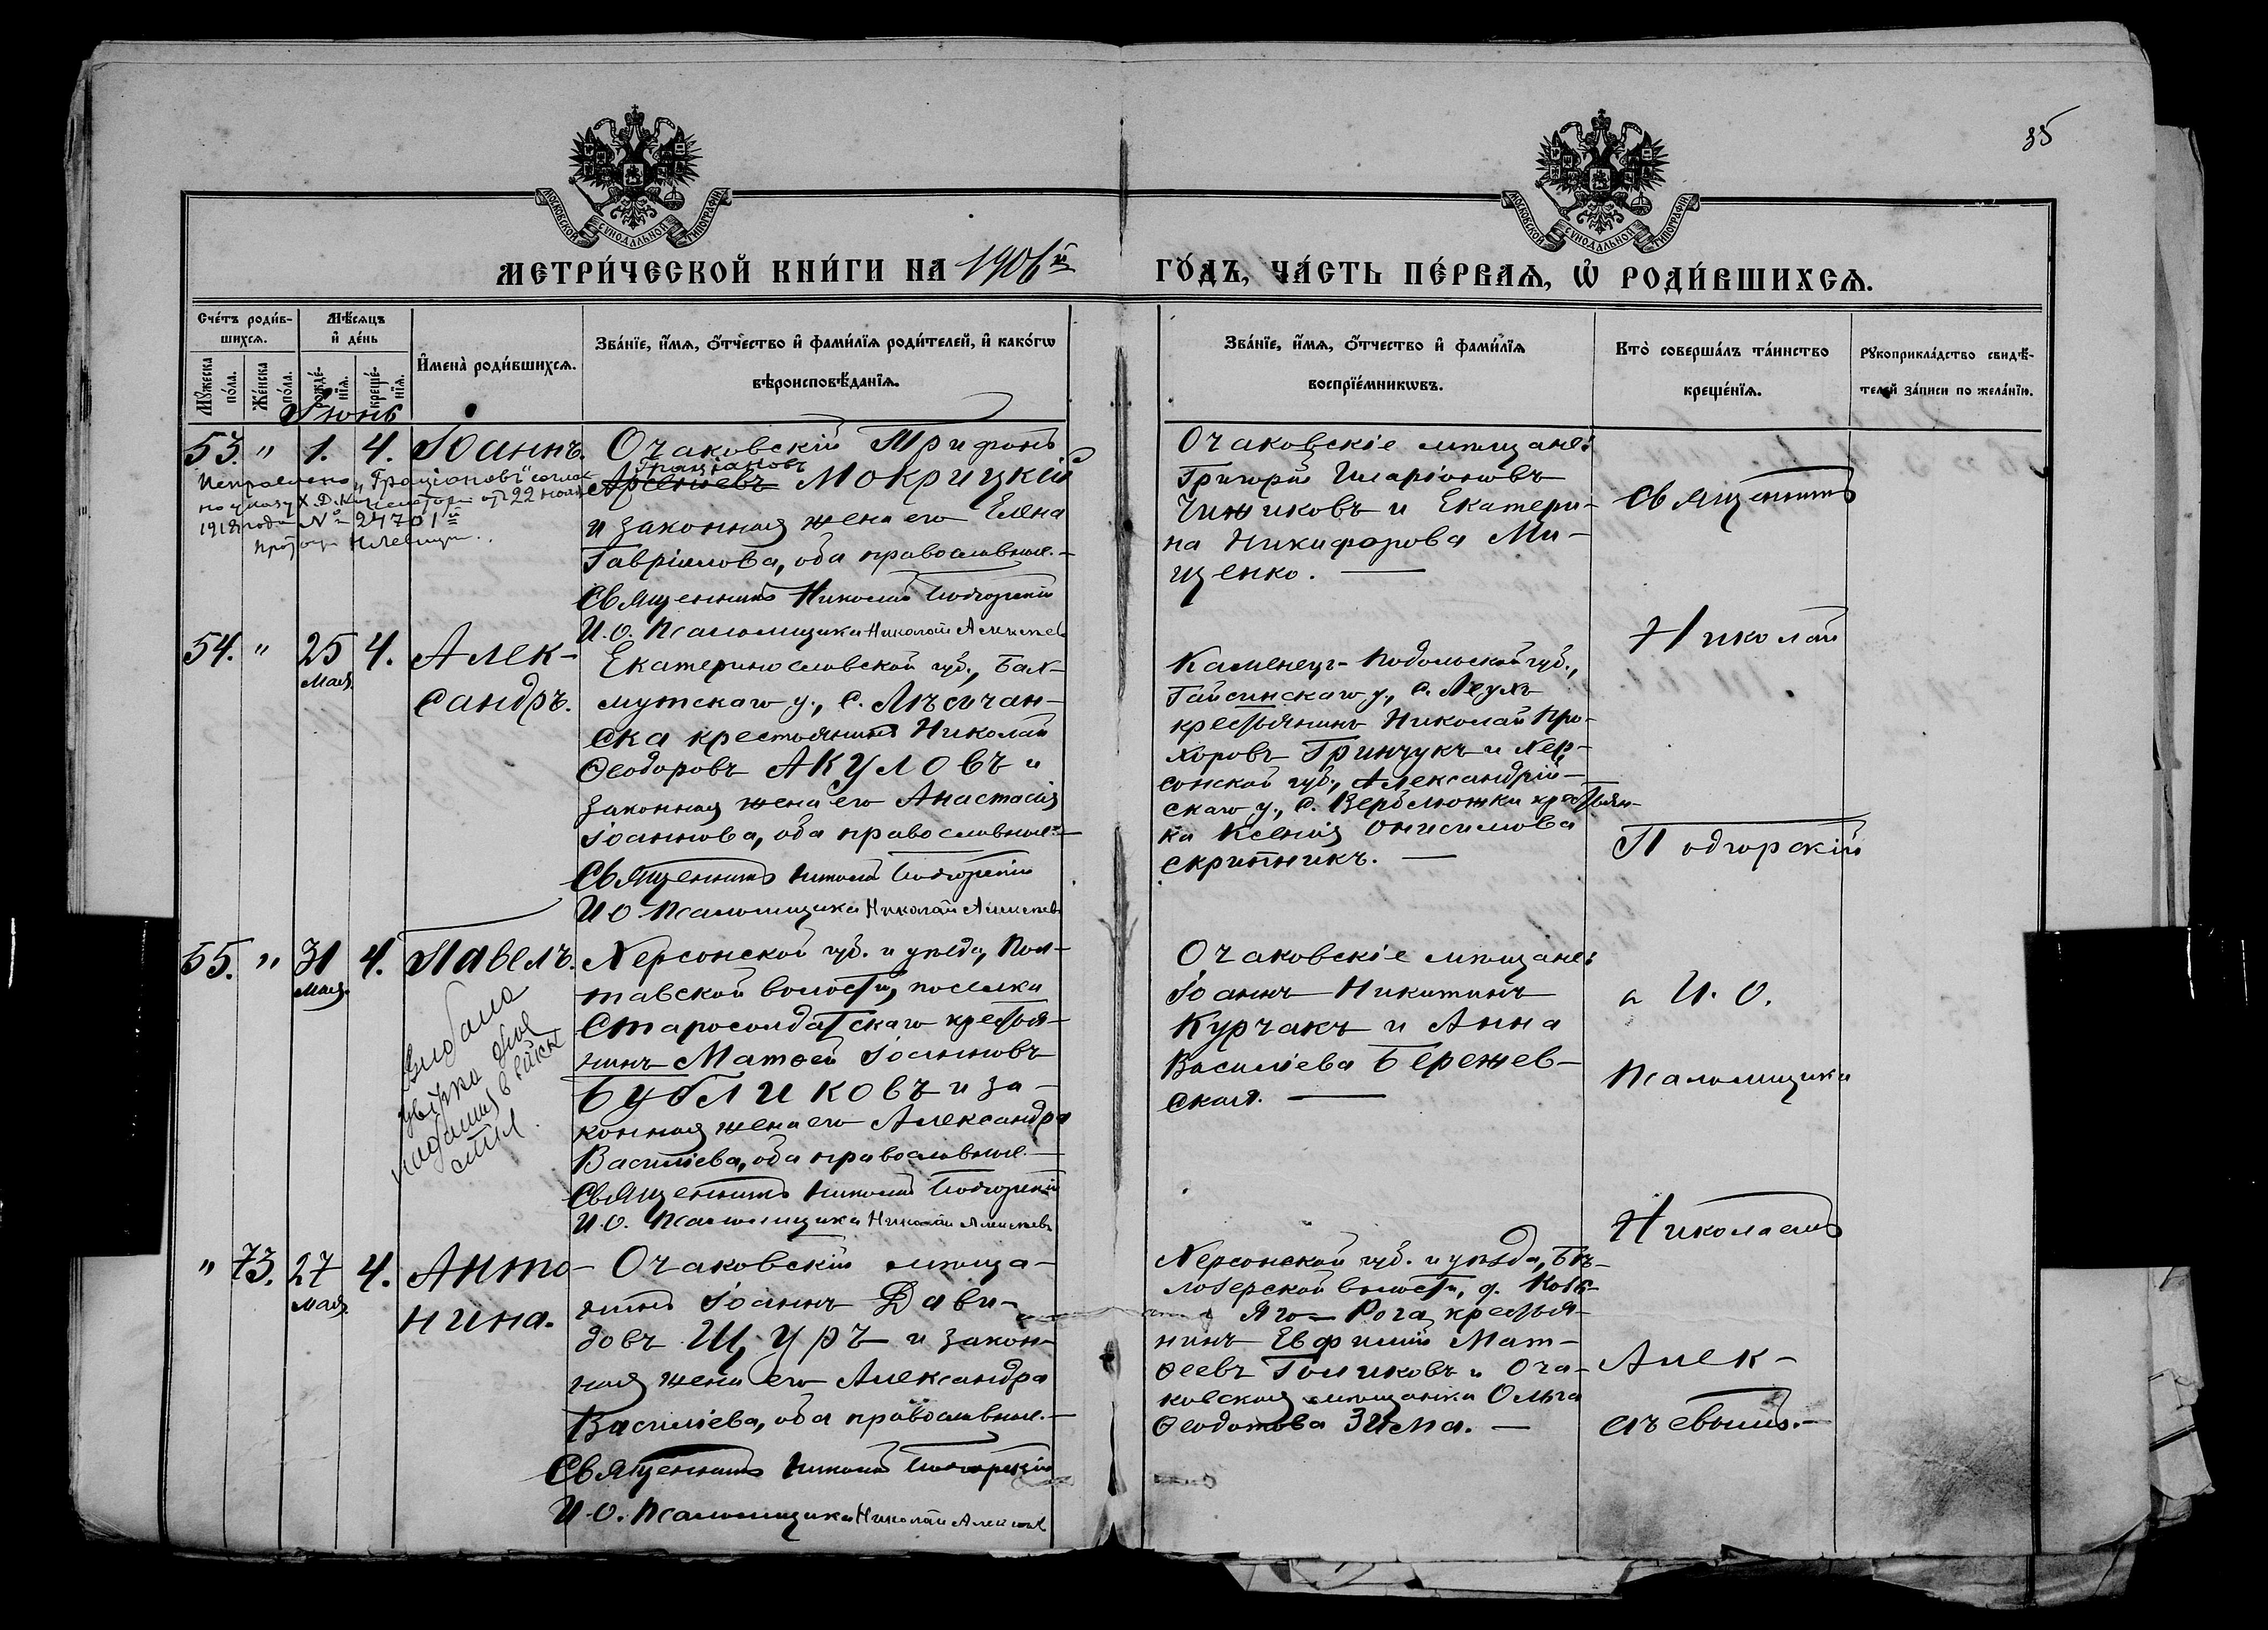 35
МОСКОВСКОЙ СѴНОДАЛЬНОЙ ТИПОГРАФІИ
МОСКОВСКОЙ СѴНОДАЛЬНОЙ ТИПОГРАФІИ
МЕТРИ́ЧЕСКОЙ КНИ́ГИ НА 1906й
ГО́ДЪ, ЧА́СТЬ ПЕ́РВАѦ, Ѡ҆ РОДИ́ВШИХСѦ.
Сче́тъ роди́в-
шихсѧ.
Мꙋ́жеска по́ла.
Же́нска по́ла.
Мѣ́сѧцъ и҆ де́нь
рожде́-нїѧ.
креще́-нїѧ.
И҆мена̀ роди́вшихсѧ.
Зва́нїе, и҆́мѧ, ѻ҆́тчество и҆ фами́лїѧ роди́телей, и҆ како́гѡ
вѣроисповѣ́данїѧ.
Зва́нїе, и҆́мѧ, ѻ҆́тчество и҆ фами́лїѧ
воспрїе́мникѡвъ.
Кто̀ соверша́лъ та́инство
креще́нїѧ.
Рꙋкоприкла́дство свидѣ́-
телей за́писи по жела́нїю.
Іюнь
53. " 1. 4. Іоаннъ.
Очаковскій Трифонъ
Граціановъ
Арсеніевъ Мокрицкій
и законная жена его Елена
Гавріилова, оба православные.
Священникъ Николай Подгорскій
И. О. Псаломщика Николай Алексѣев
Исправлено „Граціановъ" соглас
но указу Х. Д. Консисторіи отъ 22 ноя
1918 года № 24701й
Очаковскіе мѣщане:
Григорій Иларіоновъ
Чижиковъ и Екатери-
на Никифорова Ми-
щенко.
Священникъ
54. " 25 Мая. 4. Алек-
сандръ.
Екатеринославской губ., Бах-
мутскаго у., с. Лъсичан-
ска крестьянинъ Николай
Ѳеодоровъ Акуловъ и
законная жена его Анастасія
Іоаннова, оба православные.
Священникъ Николай Подгорскій
И О Псаломщика Николай Алексѣевъ
Каменецъ-Подольской губ.,
Гайсинскаго у., с. Леухъ
крестьянинъ Николай Про-
хоровъ Гринчукъ и Хер-
сонской губ., Александрій-
скаго у., с. Верблюжки крестьян-
ка Ксенія Онисимова
Скрипникъ.
Николай
Подгорскій
55. " 31 Мая. 4. Павелъ.
Херсонской губ. и уѣзда, Пол-
тавской волости, поселка
Старосолдатскаго крестья-
нинъ Матѳей Іоанновъ
Бубликовъ и за-
конная жена его Александра
Василіева, оба православные.
Священникъ Николай Подгорскій
И. О. Псаломщика Николай Алексѣевъ
Очаковскіе мѣщане:
Іоаннъ Никитинъ
Курчакъ и Анна
Василіева Бережев-
ская.
и И. О.
Псаломщика
" 73. 27 Мая. 4. Анто-
нина.
Очаковскій мѣща-
нинъ Іоаннъ Дави-
довъ Щуръ и закон-
ная жена его Александра
Василіева, оба православные.
Священникъ Николай Подгорскій
И. О. Псаломщика Николай Алексѣев
Херсонской губ. и уѣзда, Бѣ-
лозерской волости, д. Кобы-
Яго-Рога крестья-
нинъ Евфимій Мат-
ѳеевъ Голиковъ и Оча-
ковская мѣщанка Ольга
Ѳеодотова Зима.
Николаемъ
Алек-
сѣевымъ.